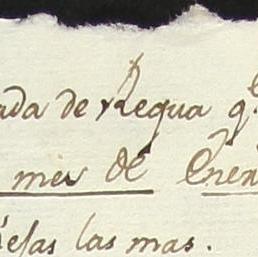 ada de Requa q.
mes de Ener
esas las mas.